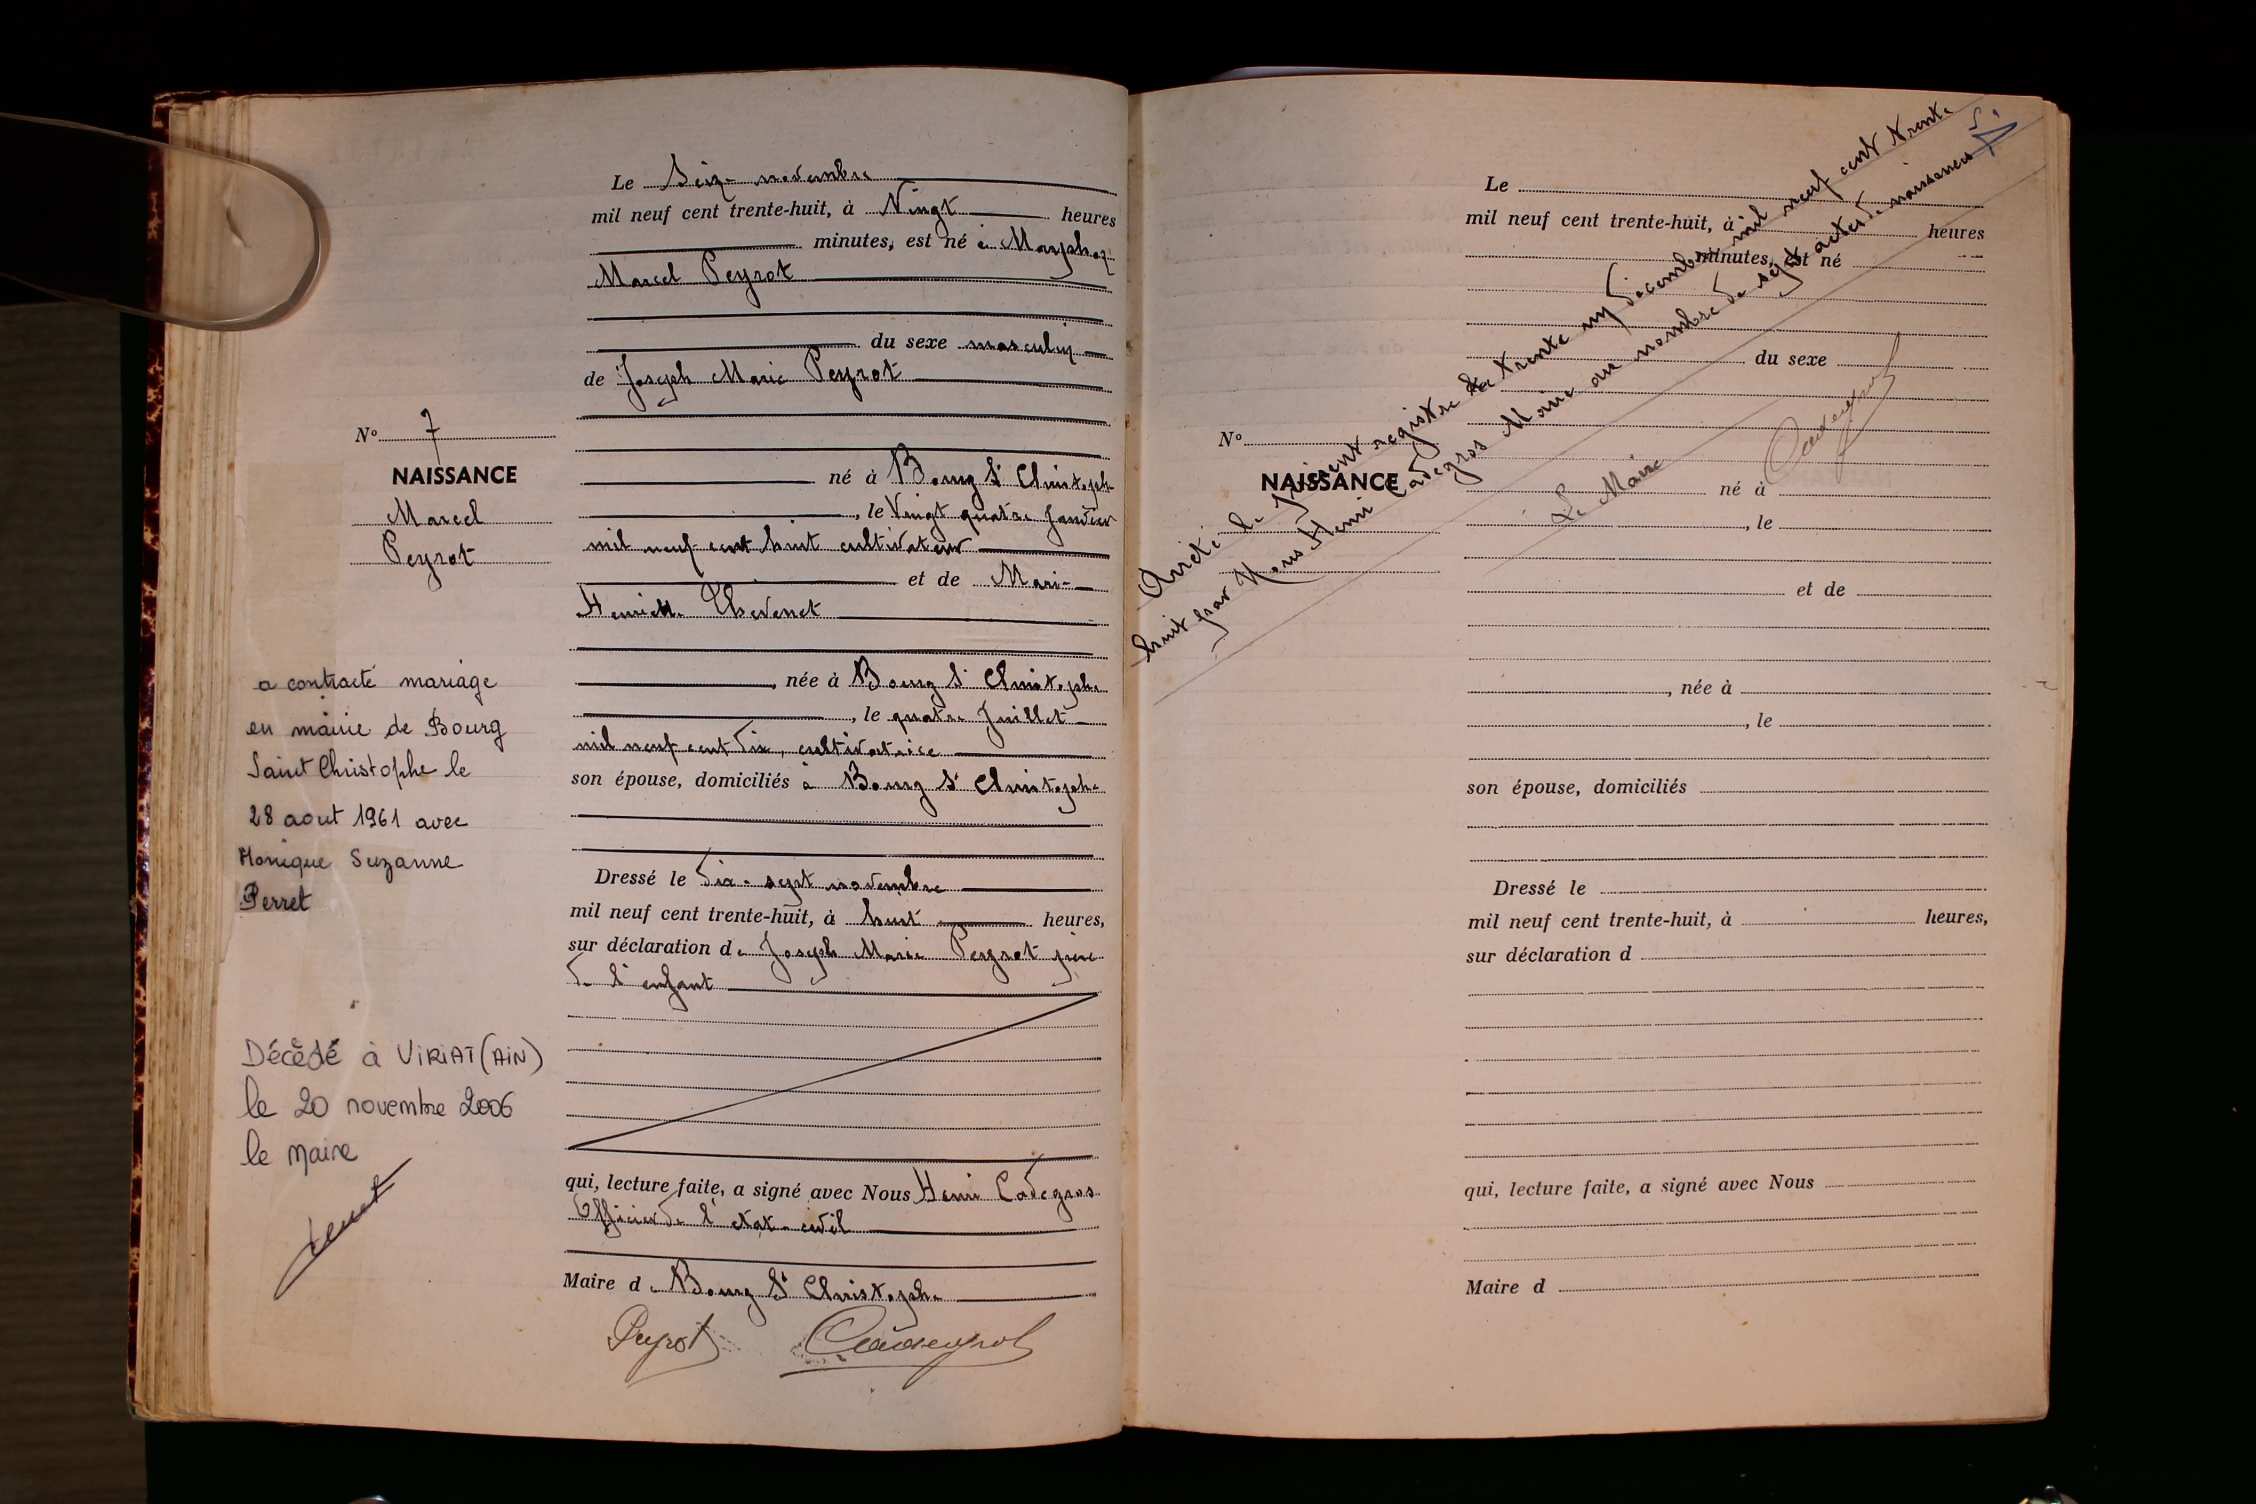 Le Seize novembre
mil neuf cent trente-huit, à Vingt heures
minutes, est né à
Marcel Peyrot
du sexe masculin
de Joseph Marie Peyrot
N° 7
NAISSANCE
Marcel
Peyrot
né à Bourg St Christophe
, le Vingt quatre Janvier
mil neuf cent huit cultivateur
et de Marie
Henriette Thevenet
, née à Bourg St Christophe
, le quatre Juillet
mil neuf cent dix, cultivatrice
son épouse, domiciliés à Bourg St Christophe
Dressé le dix-sept novembre
mil neuf cent trente-huit, à huit heures,
sur déclaration de Joseph Marie Peyrot père
de l'enfant
qui, lecture faite, a signé avec Nous Henri Cadegros
Officier de l'état-civil
Maire de Bourg St Christophe
Peyrot
a contracté mariage
en mairie de Bourg
Saint Christophe le
28 aout 1961 avec
Monique Suzanne
Perret
Décédé à VIRIAT (AIN)
le 20 novembre 2006
le Maire
Le
mil neuf cent trente-huit, à heures
minutes, est né
du sexe
de
N°
NAISSANCE
né à
, le
et de
, née à
, le
son épouse, domiciliés
Dressé le
mil neuf cent trente-huit, à heures,
sur déclaration d
qui, lecture faite, a signé avec Nous
Maire d
Arrêté le présent registre le trente un décembre mil neuf cent trente
huit par Nous Henri Cadegros Maire au nombre de sept actes de naissances
Le Maire